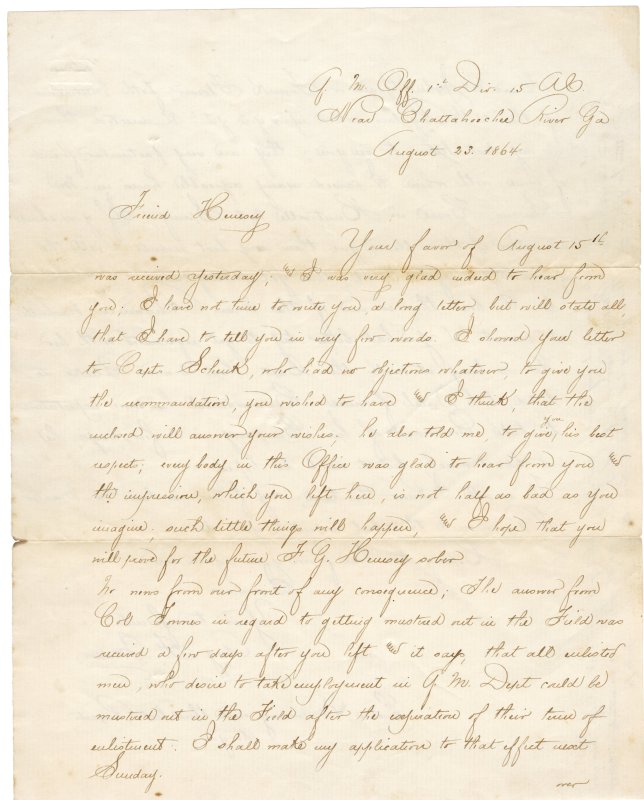 Q. M. Off. 1st Div. 15 A.C.
Near Chattahoochee River Ga
August 23. 1864
Friend Hennsey
Your favor of August 15th
was received yesterday, and I was very glad indeed to hear from
you; I have not time to write you a long letter, but will state all,
that I have to tell you in very few words. I showed your letter
to Capt. Schenk, who had no objections whatever to give you
the recommandation, you wished to have and I think, that the
inclosed will answer your wishes. he also told me, to give you his best
respect; every body in this Office was glad to hear from you and
the impression, which you left here, is not half as bad as you
imagine, such little things will happen, and I hope that you
will prove for the future F. G. Hennsey sober
No news from our front of any consequence; The answer from
Col. in regard to getting mustred out in the Field was
received a few days after you left and it says, that all enlisted
men, who desire to take employment in Q. M. Dept could be
mustred out in the Field after the expiration of their time of
enlistment. I shall make my application to that effect next
Sunday.
over